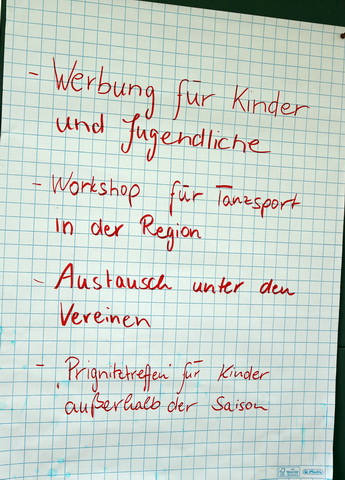 - Werbung für Kinder
und Jugendliche
- Workshop für Tanzsport
in der Region
- Austausch unter den
Vereinen
- 'Prignitztreffen' für Kinder
außerhalb der Saison